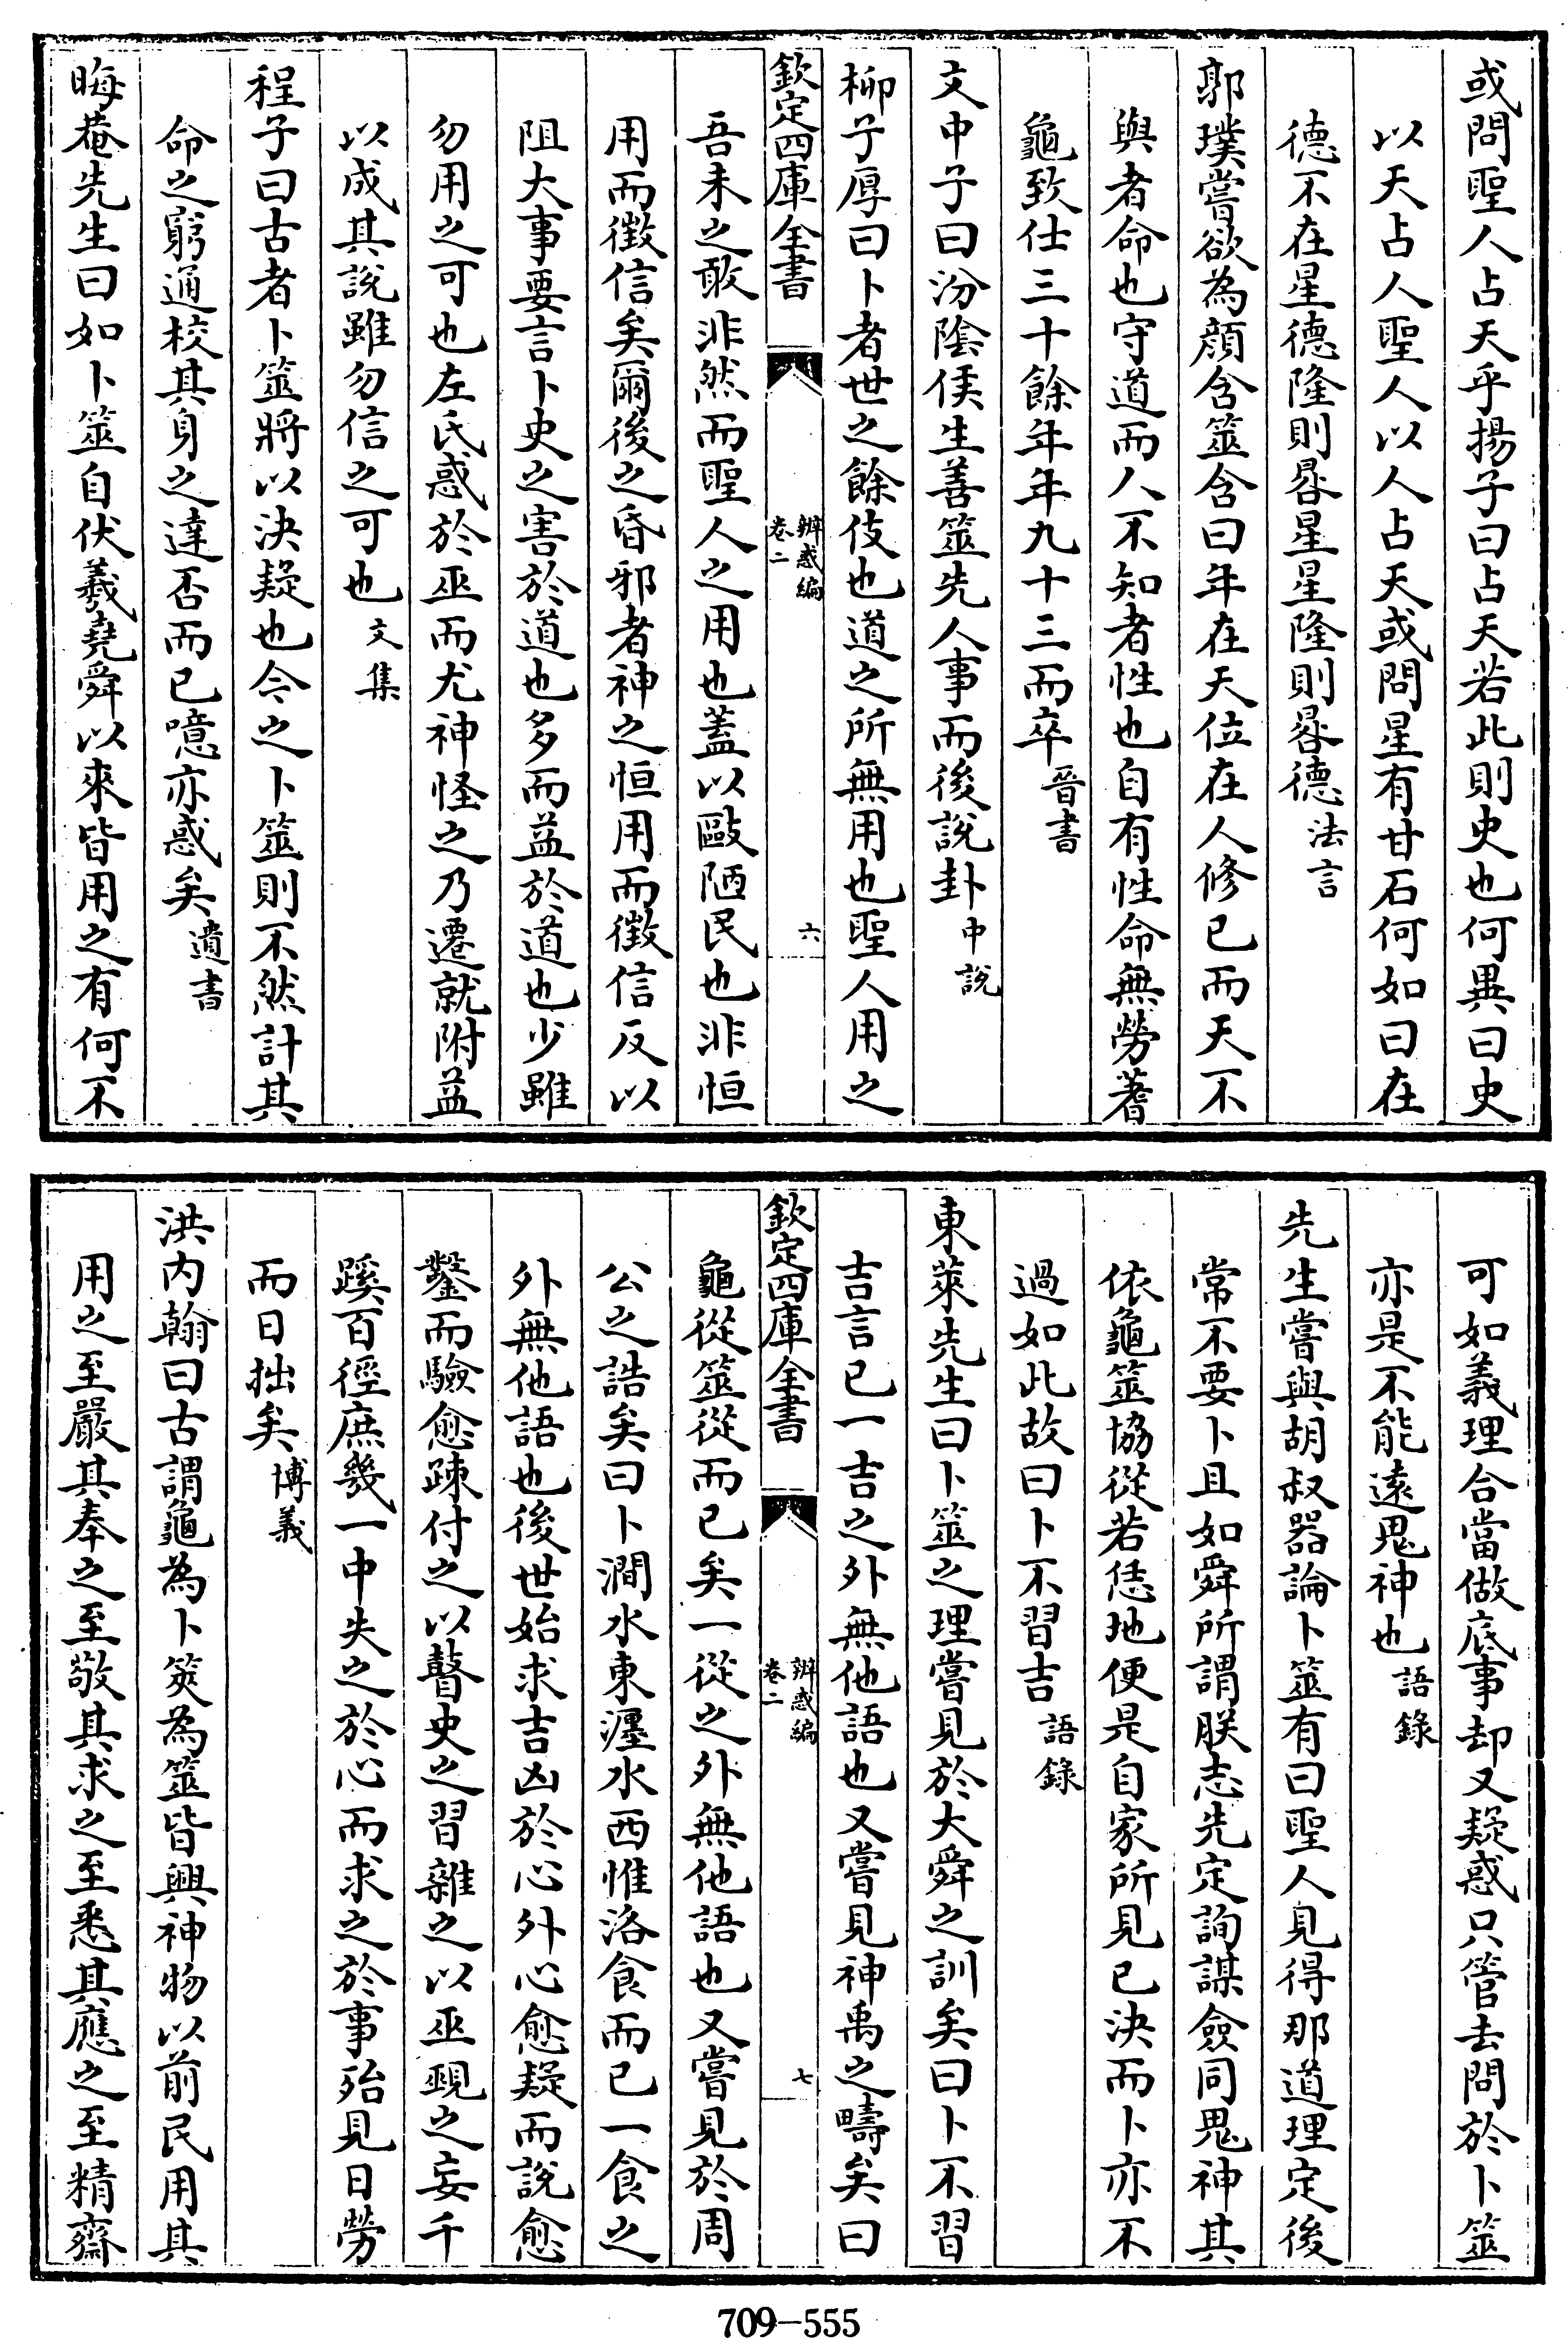 或問聖人占天乎揚子曰占天若此則史也何異曰史
以天占人聖人以人占天或問星有甘石何如曰在
德不在星德隆則晷星星隆則晷德法言
郭璞嘗欲為顔含筮含曰年在天位在人修已而天不
與者命也守道而人不知者性也自有性命無勞蓍
龜致仕三十餘年年九十三而卒晉書
文中子曰汾陰侯生善筮先人事而後說卦中說
柳子厚曰卜者世之餘伎也道之所無用也聖人用之
欽定四庫全書
辨惑編
卷二
六
吾未之敢非然而聖人之用也蓋以歐陋民也非恒
用而徵信矣爾後之昏邪者神之恒用而徵信反以
阻大事要言卜史之害於道也多而益於道也少雖
勿用之可也左氏惑於巫而尤神怪之乃遷就附益
以成其說雖勿信之可也文集
程子曰古者卜筮將以決疑也今之卜筮則不然計其
命之窮通校其身之達否而已噫亦惑矣遺書
晦菴先生曰如卜筮自伏羲堯舜以來皆用之有何不
可如義理合當做底事却又疑惑只管去問於卜筮
亦是不能遠鬼神也語錄
先生嘗與胡叔器論卜筮有曰聖人見得那道理定後
常不要卜且如舜所謂朕志先定詢謀僉同鬼神其
依龜筮協從若恁地便是自家所見已決而卜亦不
過如此故曰卜不習吉語錄
東萊先生曰卜筮之理嘗見於大舜之訓矣曰卜不習
吉言已一吉之外無他語也又嘗見神禹之疇矣曰
欽定四庫全書
辨惑編
卷二
七
龜從筮從而已矣一從之外無他語也又嘗見於周
公之誥矣曰卜澗水東瀍水西惟洛食而已一食之
外無他語也後世始求吉凶於心外心愈疑而說愈
鑿而驗愈疎付之以瞽史之習雜之以巫覡之妄千
蹊百徑庶幾一中失之於心而求之於事殆見日勞
而日拙矣博義
洪内翰曰古謂龜為卜筴為筮皆興神物以前民用其
用之至嚴其奉之至敬其求之至悉其應之至精齋
709-555